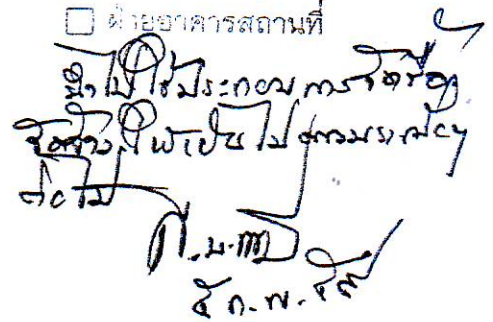 ☐ ฝ่ายอาคารสถานที่
นำไปใช้ประกอบการจัดซื้อ
จัดจ้าง ให้เป็นไปตามระเบียบฯ
ต่อไป